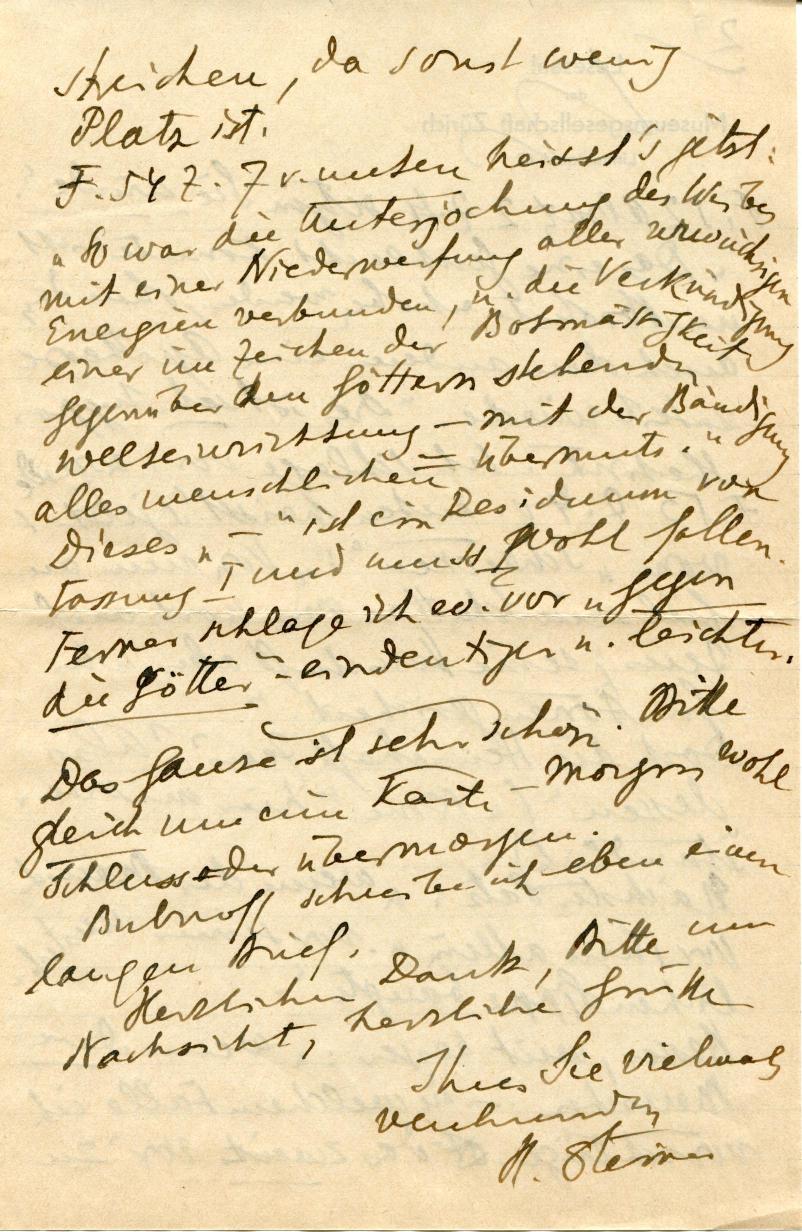 streichen, da sonst wenig
Platz ist.
F. 54 Z. 7 v. unten heisst's jetzt:
"So war die Unterjochung des Weibes
mit einer Niederwerfung aller urwüchsigen
Energien verbunden, u. die Verkündigung
einer im Zeichen der Botmässigkeit
gegenüber den Göttern stehenden
Welteinrichtung – mit der Bändigung
alles menschlichen Übermuts."
Dieses "–" ist ein Residuum von
Fassung I und muss wohl fallen.
Ferner schlage ich ev. vor "gegen
die Götter" – eindeutiger u. leichter.
Das Ganze ist sehr schön. Bitte
gleich um eine Karte – morgen wohl
Schluss oder übermorgen.
Bubnoff schreibe ich eben einen
langen Brief.
Herzlichen Dank, Bitte um
Nachsicht, herzliche Grüsse
Ihres Sie vielmals
H. Steiner